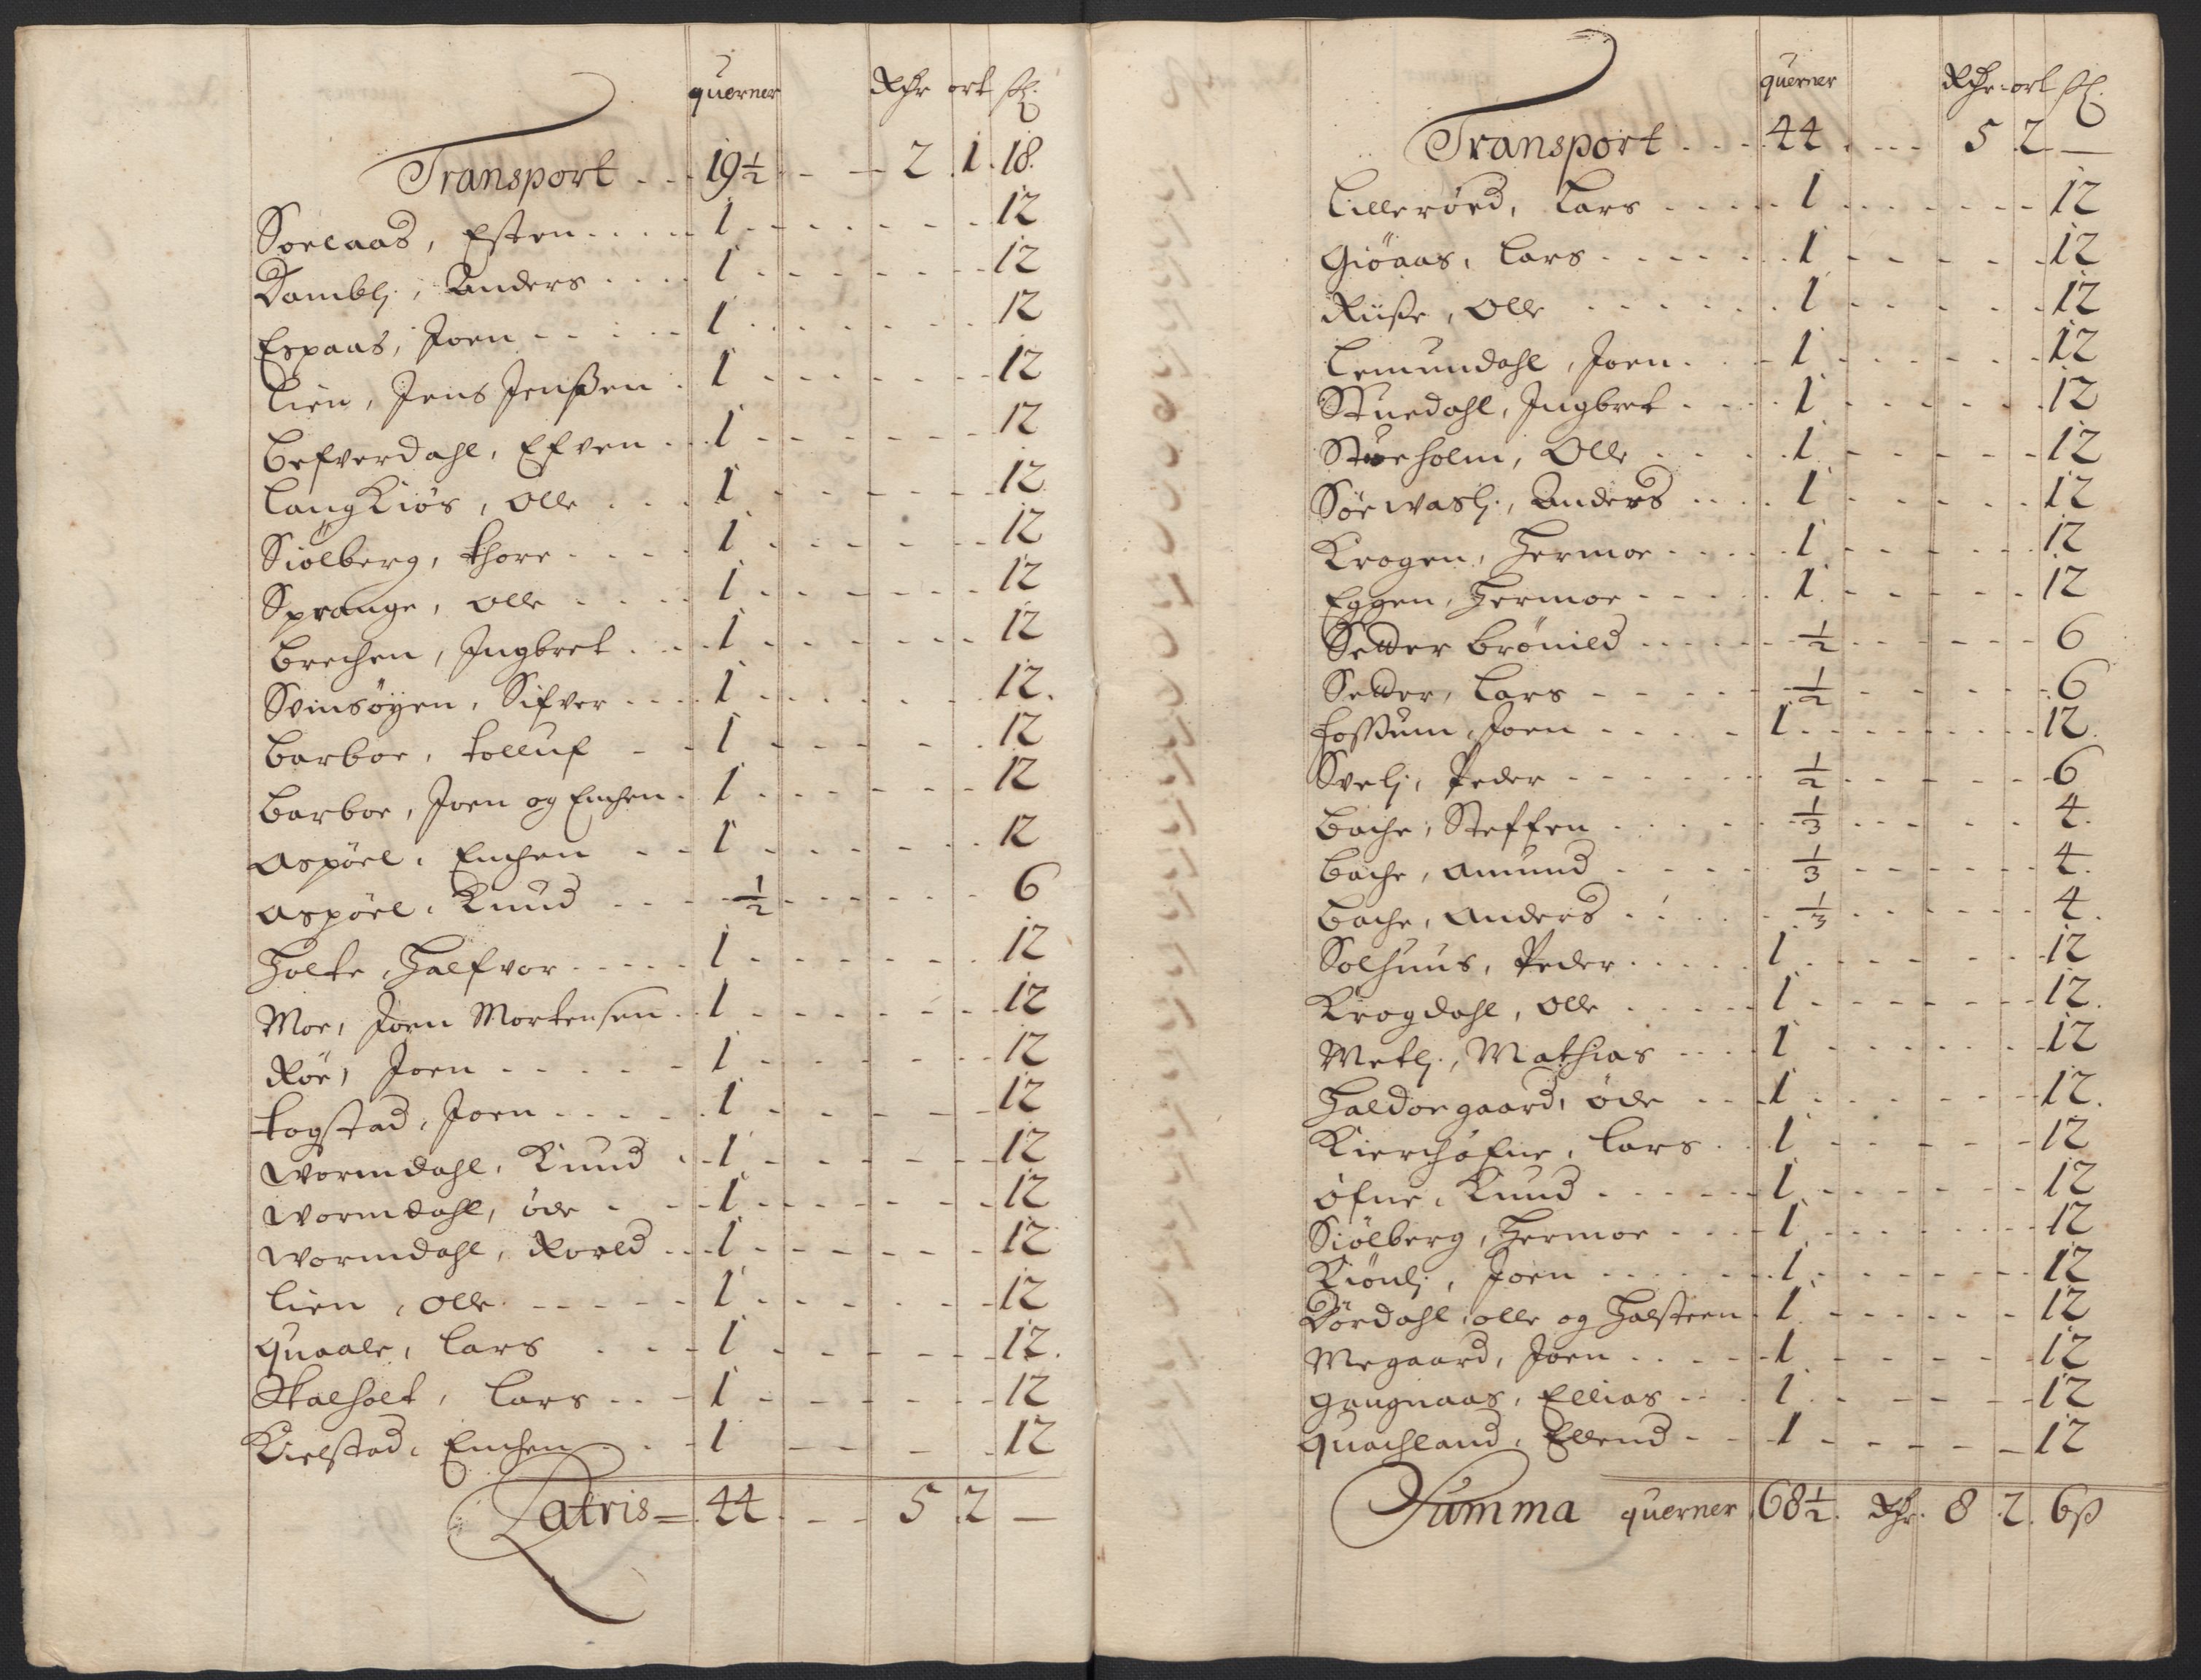 querner Rdr ort ß
Transport 19½ 2 1 18
Soelaas, Esten 1 12
Dambli, Anders 1 12
Espaas, Joen 1 12
Lien, Jens Jenßen 1 12
Befverdahl, Efven 1 12
LangKiös, Olle 1 12
Siölberg, thore 1 12
Sprange, Olle 1 12
Brechen, Ingbret 1 12
Svinsøyen, Sifver 1 12
Barboe, tolluf 1 12
Barboe, Joen og Enchen 1 12
Aspöel, Enchen 1 12
Aspöel, Knud ½ 6
Holte, Halfvor 1 12
Moe, Joen Mortensen 1 12
Röe, Joen 1 12
Fogstad, Joen 1 12
Wormdahl, Knud 1 12
Wormdahl, öde 1 12
Wormdahl, Roald 1 12
Lien, Olle 1 12
Quaale, Lars 1 12
Skalholt, Lars 1 12
Kielstad, Enchen 1 12
Latris 44 5 2 —
querner Rdr ort ß
Transport 44 5 2 —
Lilleröed, Lars 1 12
Giöaas, Lars 1 12
Riiße, Olle 1 12
Lemundahl, Joen 1 12
Stuedahl, Ingbret 1 12
Stueholm, Olle 1 12
Sörwasli, Anders 1 12
Krogen, Hermoe 1 12
Eggen, Hermoe 1 12
Setter Brönild ½ 6
Setter, Lars ½ 6
Foßum, Joen 1 12
Sveli, Peder ½ 6
Bache, Steffen ⅓ 4
Bache, Amund ⅓ 4
Bache, Anders ⅓ 4
Solhuus, Peder 1 12
Krogdahl, Olle 1 12
Metli, Mathias 1 12
Haldoegaard, öde 1 12
Kierchöfne, Lars 1 12
Öfne, Knud 1 12
Siölberg, Hermoe 1 12
Kiönli, Joen 1 12
Dördahl, Olle og Halsteen 1 12
Megaard, Joen 1 12
Gaugnaas, Ellias 1 12
Quachland, Ellend 1 12
Summa querner 68½ Rdr 8 2 6ß